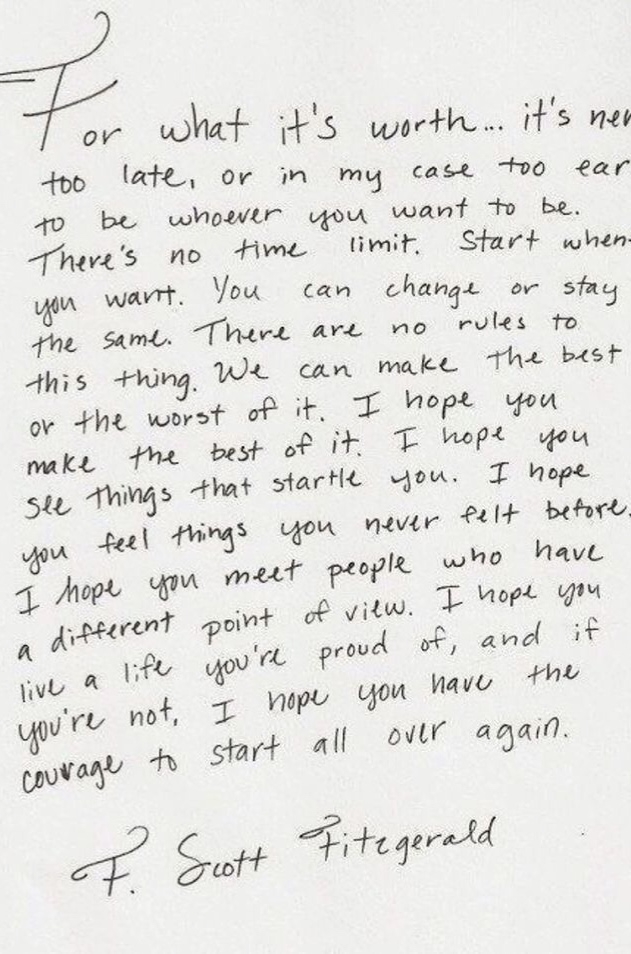 For what it's worth... it's nev
too late, or in my case too ear
to be whoever you want to be.
There's no time limit. Start when
you want. You can change or stay
the same. There are no rules to
this thing. We can make the best
or the worst of it. I hope you
make the best of it. I hope you
see things that startle you. I hope
you feel things you never felt before.
I hope you meet people who have
a different point of view. I hope you
live a life you're proud of, and if
you're not, I hope you have the
courage to start all over again.
F. Scott Fitzgerald